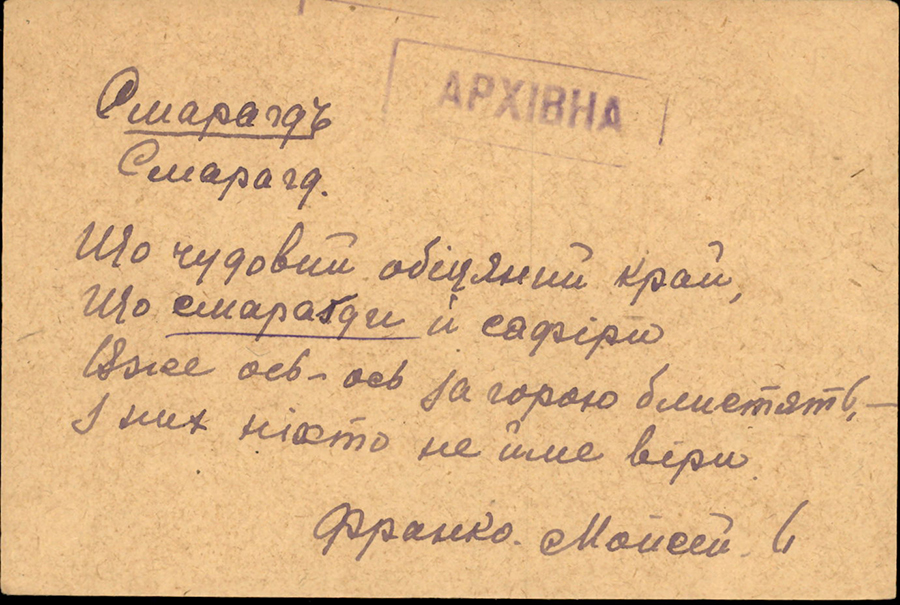 АРХІВНА
Смарагдъ
Смарагд.
Що чудовий обіцяний край,
Що смараґди й сафіри
Вже ось-ось за горою блистять, —
З них ніхто не йме віри
Франко. Мойсей.